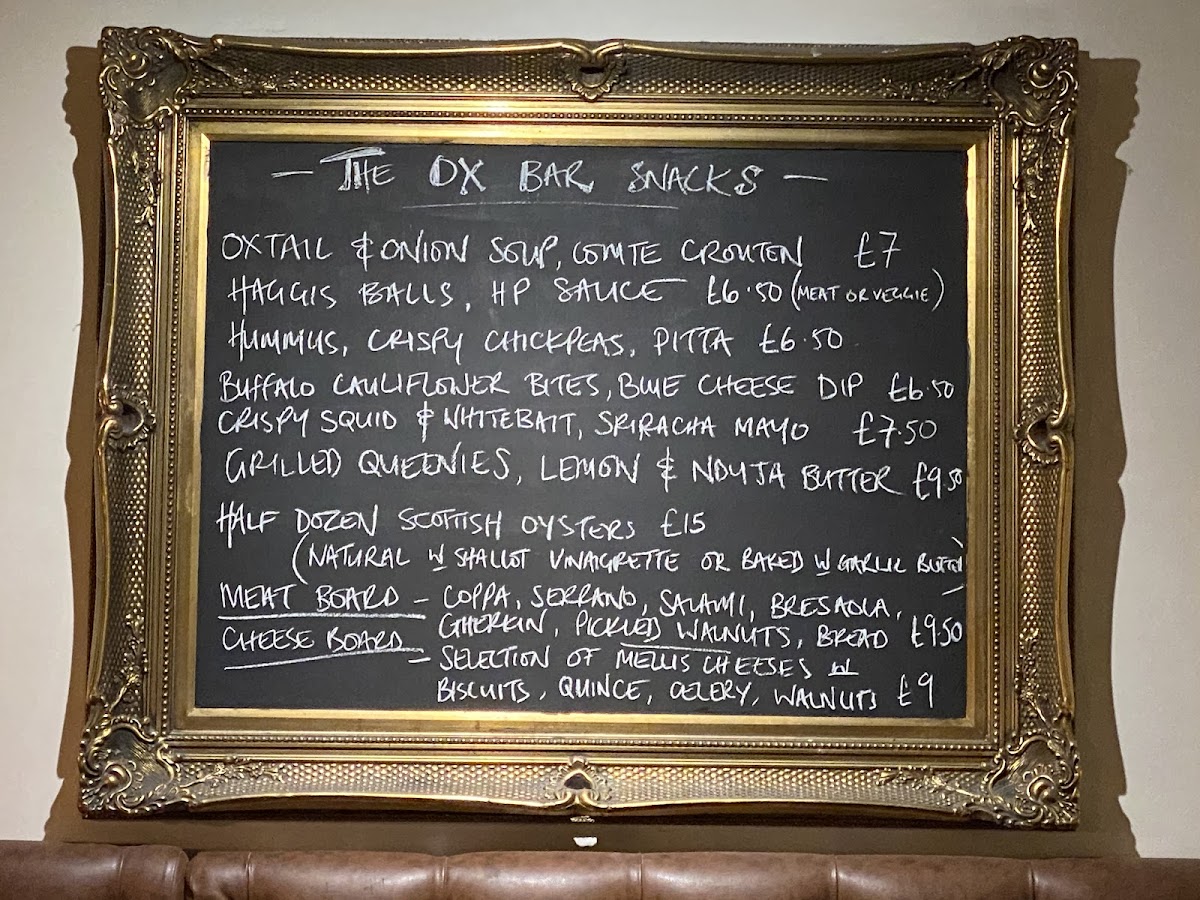 — THE OX BAR SNACKS —
OXTAIL & ONION SOUP, COMTE CROUTON £7
HAGGIS BALLS, HP SAUCE £6.50 (MEAT OR VEGGIE)
HUMMUS, CRISPY CHICKPEAS, PITTA £6.50
BUFFALO CAULIFLOWER BITES, BLUE CHEESE DIP £6.50
CRISPY SQUID & WHITEBAIT, SRIRACHA MAYO £7.50
GRILLED QUEENIES, LEMON & NDUJA BUTTER £9.50
HALF DOZEN SCOTTISH OYSTERS £15
(NATURAL W SHALLOT VINAIGRETTE OR BAKED W GARLIC BUTTER)
MEAT BOARD - COPPA, SERRANO, SALAMI, BRESAOLA,
GHERKIN, PICKLED WALNUTS, BREAD £9.50
CHEESE BOARD - SELECTION OF MELLIS CHEESES W
BISCUITS, QUINCE, CELERY, WALNUTS £9